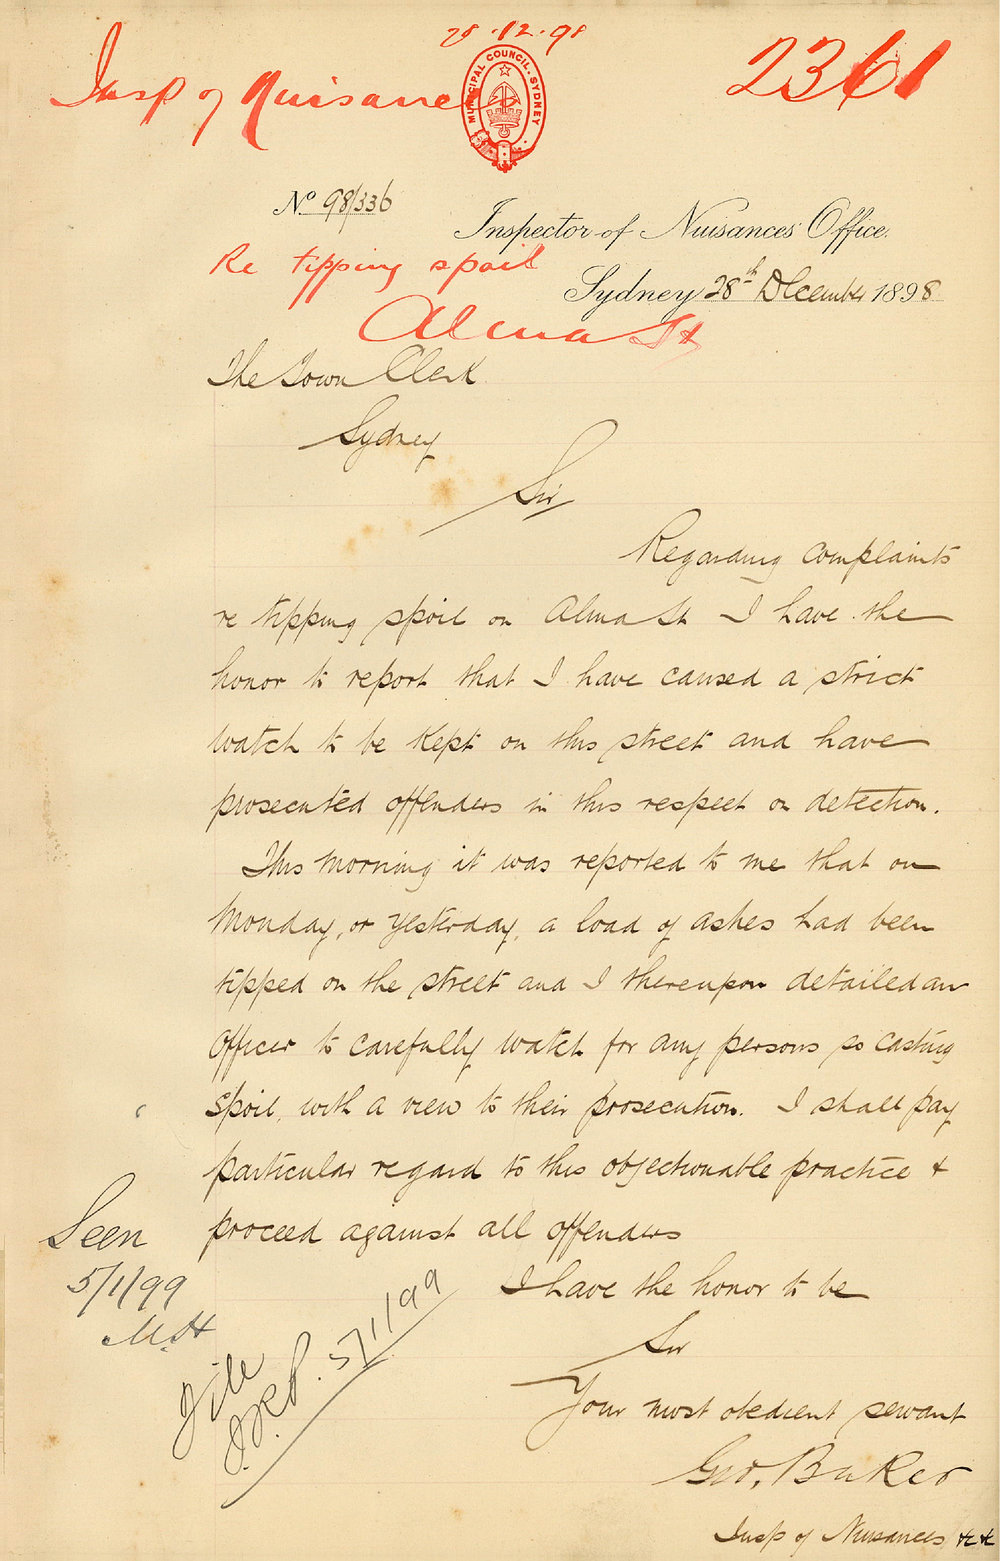 28.12.98
Insp of Nuisances
2361
MUNICIPAL COUNCIL. SYDNEY
No 98/336
Inspector of Nuisances Office.
Re tipping spoil
Sydney 28th December 1898
Alma St
The Town Clerk
Sydney
Sir
Regarding complaints
re tipping spoil on Alma St I have the
honor to report that I have caused a strict
watch to be kept on this street and have
prosecuted offenders in this respect on detection.
This morning it was reported to me that on
Monday, or yesterday, a load of ashes had been
tipped on the street and I thereupon detailed an
Officer to carefully watch for any persons so casting
Spoil, with a view to their prosecution. I shall pay
particular regard to this objectionable practice &
proceed against all offenders
I have the honor to be
Sir
Your most obedient servant
Geo. Baker
Insp of Nuisances &c &c
Seen
5/1/99
File
5/1/99